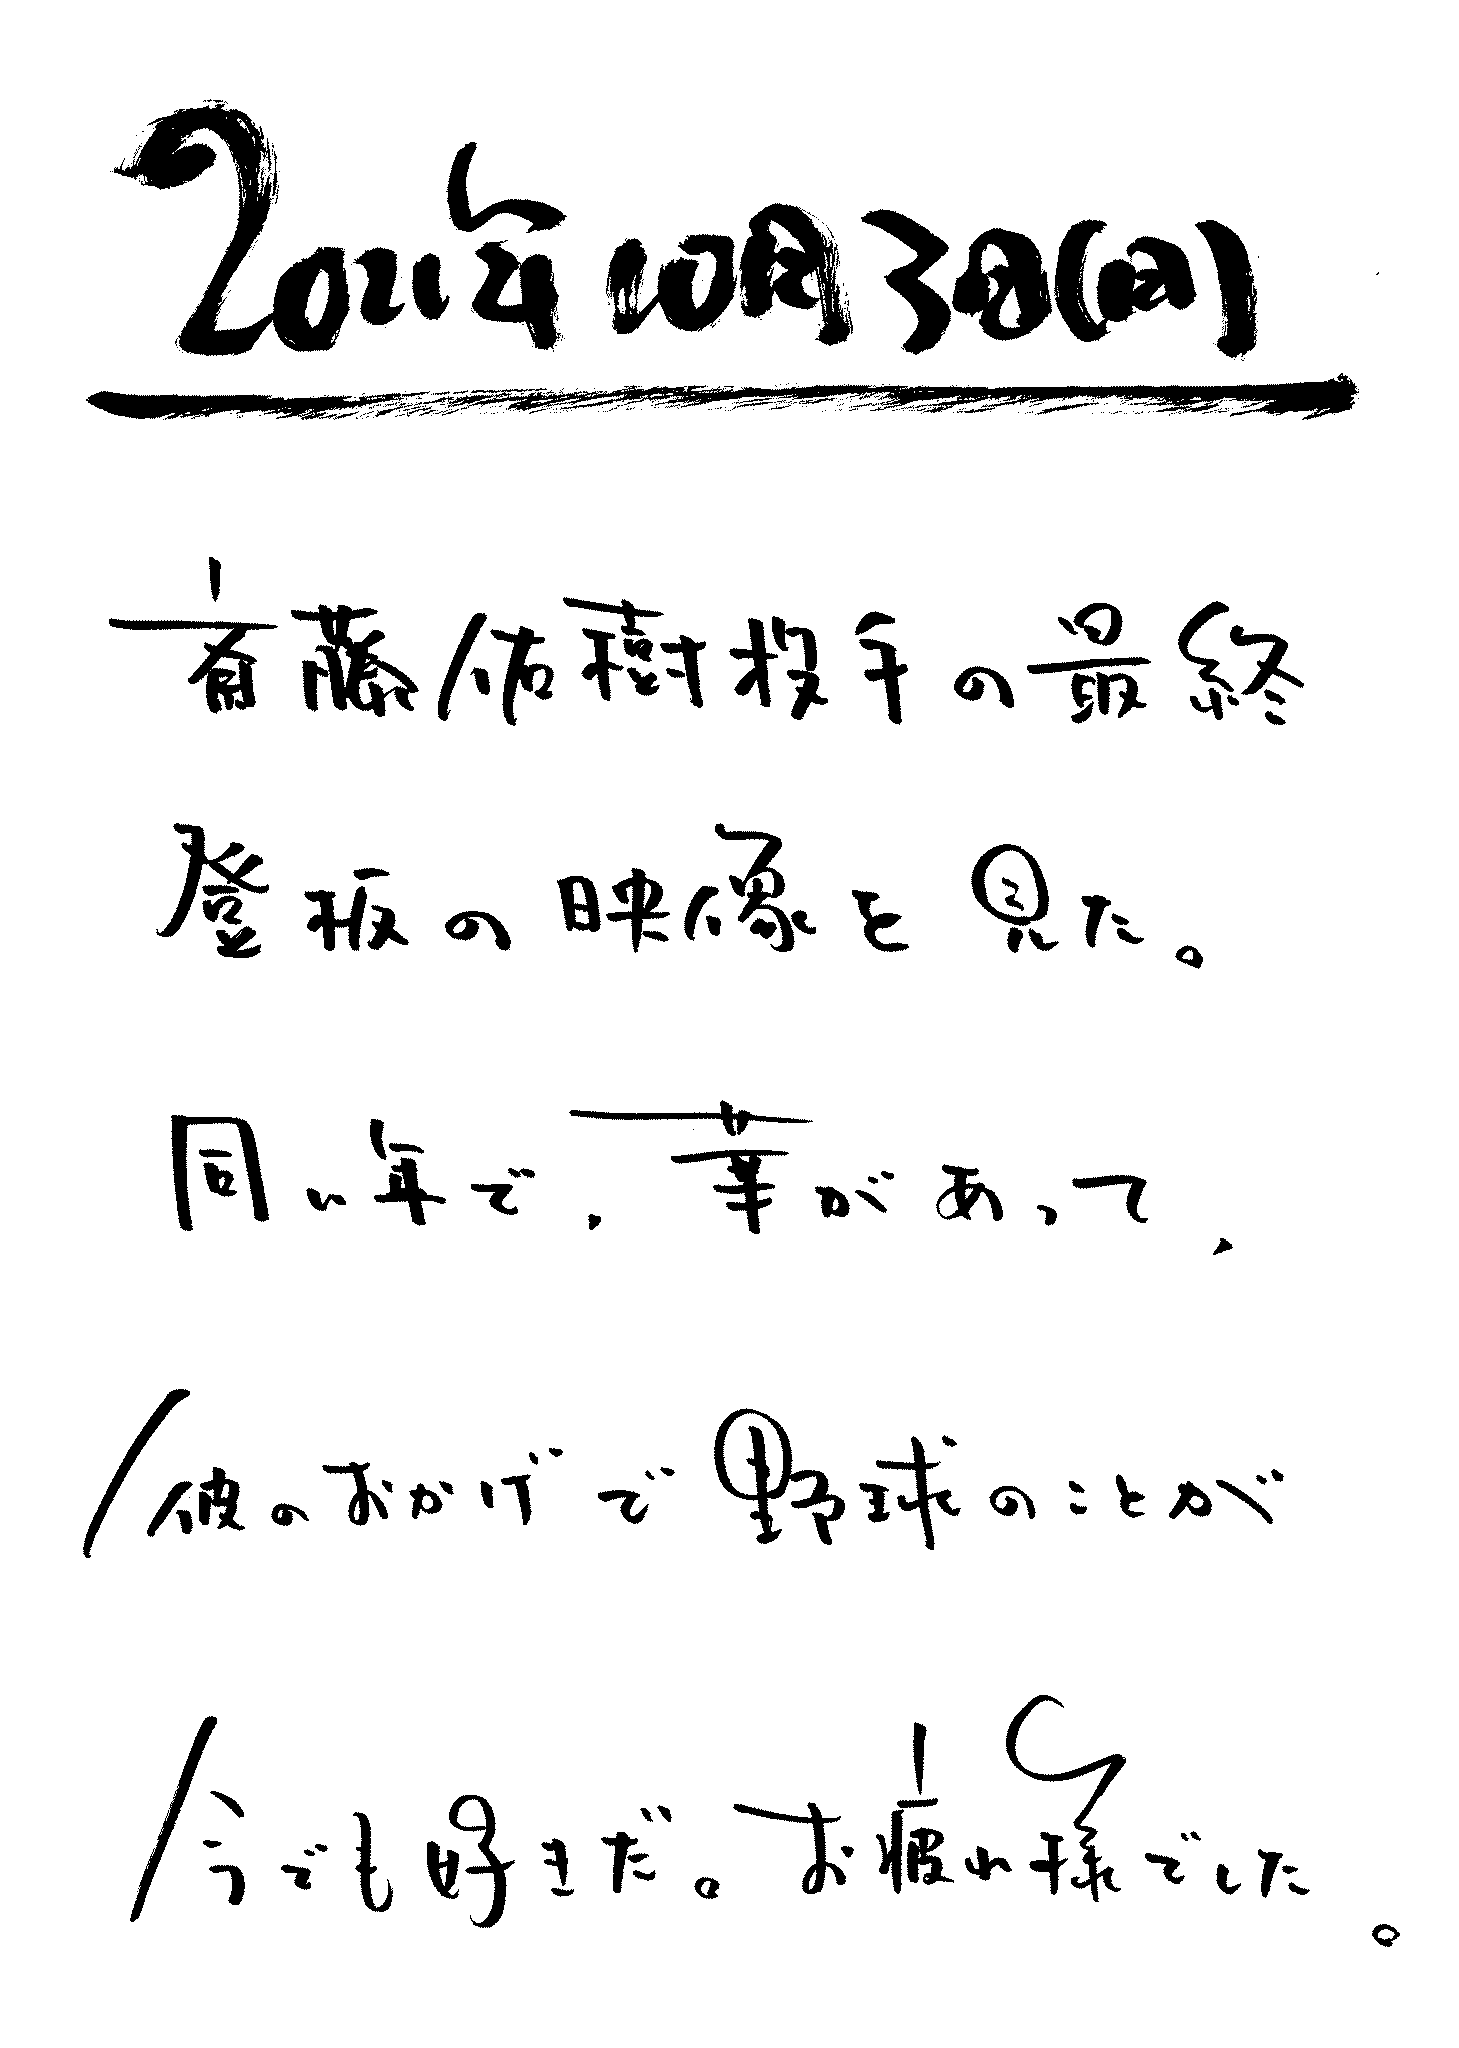 2021年10月3日(日)
斎藤佑樹投手の最終
登板の映像を見た。
同い年で、華があって、
彼のおかげで野球のことが
今でも好きだ。お疲れ様でした。